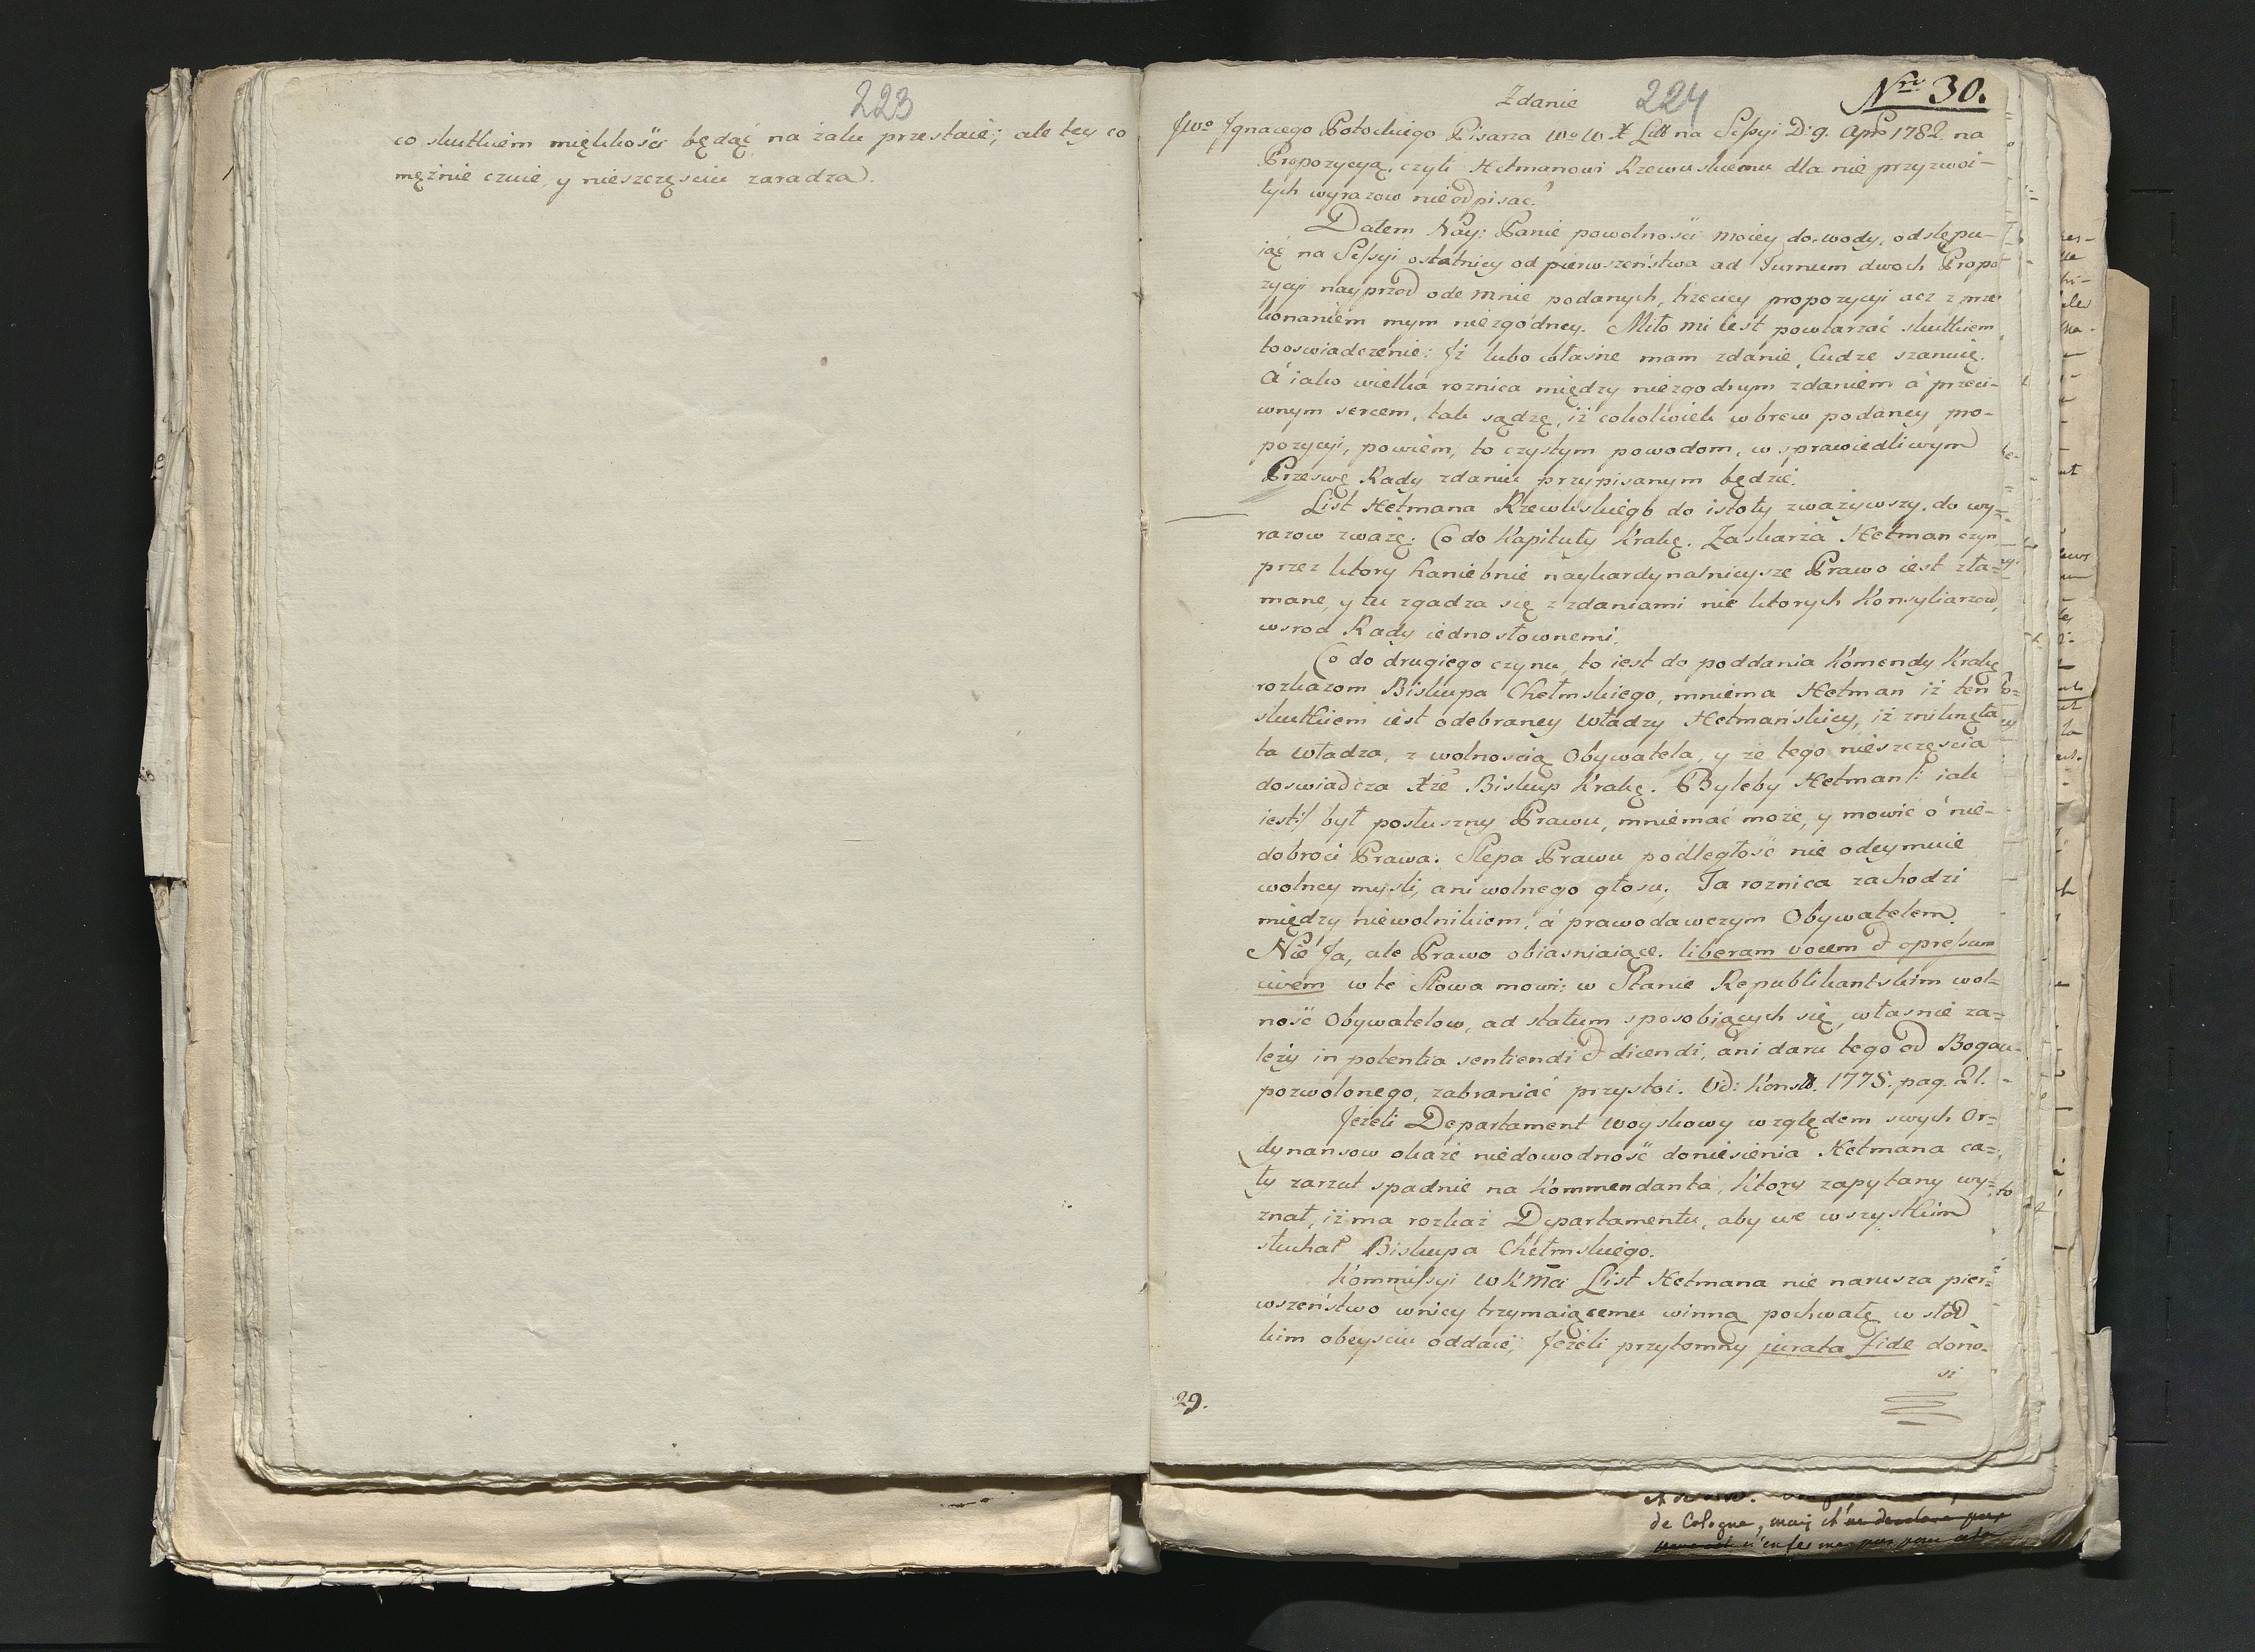 223
co skutkiem miękkości będąc na żalu przestaie; ale tey co
mężnie czuie, y nieszczęściu zaradza.
224
Nro 30.
Zdanie
JWo Ignacego Potockiego Pisarza Wo W X Litt na Sessyi D: 9. Apr 1782. na
Propozycyą, czyli Hetmanowi Rzewuskiemu dla nie przyzwoi-
tych wyrazow nieodpisać?
Dałem Nay: Panie powolności moiey dowody, odstępu-
iąc na Sessyi ostatniey od pierwszeństwa ad Turnum dwoch Propo
zycyi nayprzod odemnie podanych, trzeciey propozycyi acz z prze
konaniem mym niezgodney. Miło mi iest powtarzać skutkiem
to oswiadczenie: Iż lubo własne mam zdanie, Cudze szanuię.
A iako wielka roznica między niezgodnym zdaniem a przeci-
wnym sercem, tak sądzę, iż cokolwiek wbrew podaney pro-
pozycyi, powiem, to czystym powodom, w sprawiedliwym
Prześwę Rady zdaniu przypisanym będzie.
List Hetmana Rzewuskiego do istoty zważywszy, do wy=
razow zważę. Co do Kapituły Krakę. Zaskarża Hetman czyn
przez ktory haniebnie naykardynalnieysze Prawo iest zła=
mane, y tu zgadza się z zdaniami nie ktorych Konsyliarzow,
wsrod Rady iednosłownemi.
Co do drugiego czynu, to iest do poddania Komendy Krakę
rozkazom Biskupa Chełmskiego, mniema Hetman iż ten
skutkiem iest odebraney władzy Hetmańskiey, iż zniknęła
ta władza, z wolnością Obywatela, y że tego nieszczęscia
doswiadcza Xże Biskup Krakę. Byleby Hetman /: iak
iest:/ był posłuszny Prawu, mniemać może, y mowić o nie-
dobroci Prawa. Slepa Prawu podległość nie odeymuie
wolney mysli, ani wolnego głosu; Ta roznica zachodzi
między niewolnikiem, a prawodawczym Obywatelem.
Nie Ja, ale Prawo obiasniaiące. liberam vocem & opressum
civem w te Słowa mowi: w Stanie Republikantskim wol=
ność Obywatelow, ad statum sposobiących się, własnie za=
leży in potentia sentiendi & dicendi, ani daru tego od Boga
pozwolonego, zabraniać przystoi. Vid: Konst. 1775. pag. 21.
Jeżeli Departament Woyskowy względem swych Or=
dynansow okaże niedowodność doniesienia Hetmana ca=
ły zarzut spadnie na Kommendanta, Ktory zapytany wy=
znał, iż ma rozkaz Departamentu, aby we wszystkim
słuchał Biskupa Chełmskiego.
Kommissyi WKMci List Hetmana nie narusza pier=
wszeństwo wniey trzymaiącemu winną pochwałę w słod
kim obeysciu oddaie; Jeżeli przytomny jurata fide dono-
si
29.
de Cologne, mais